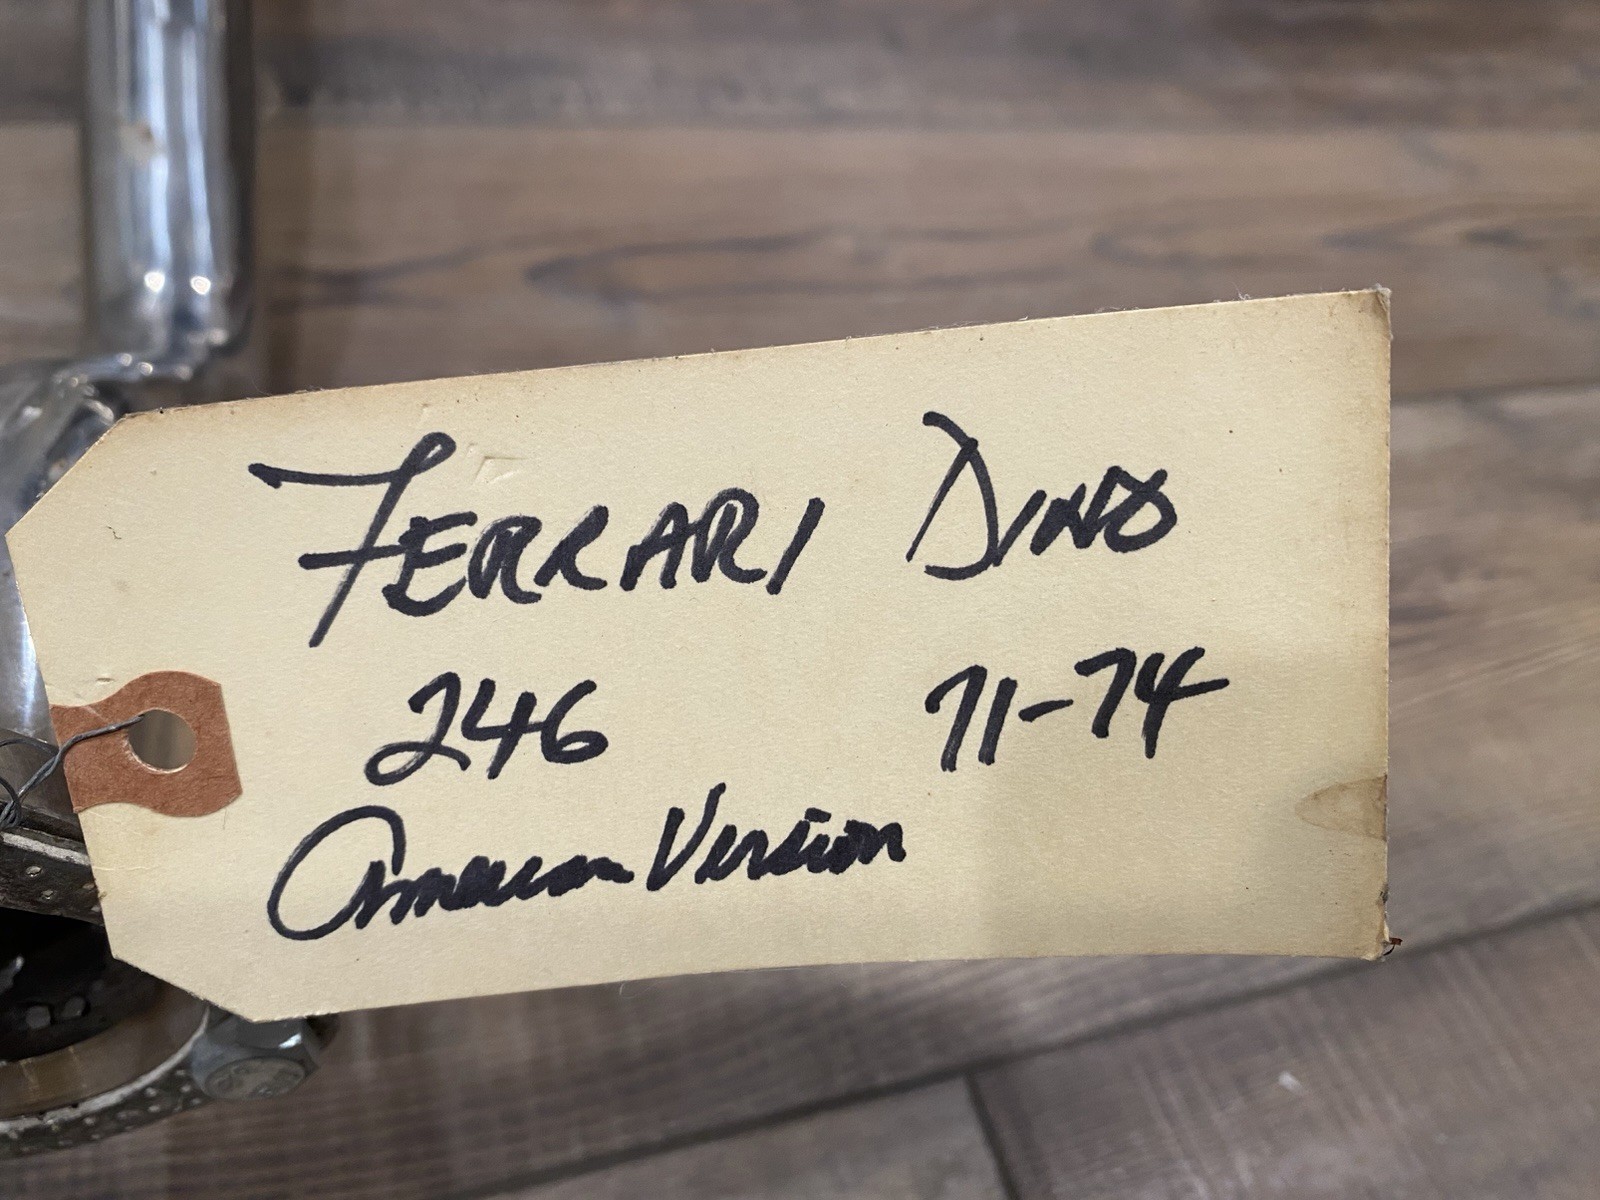 FERRARI DINO
246 71-74
American Version